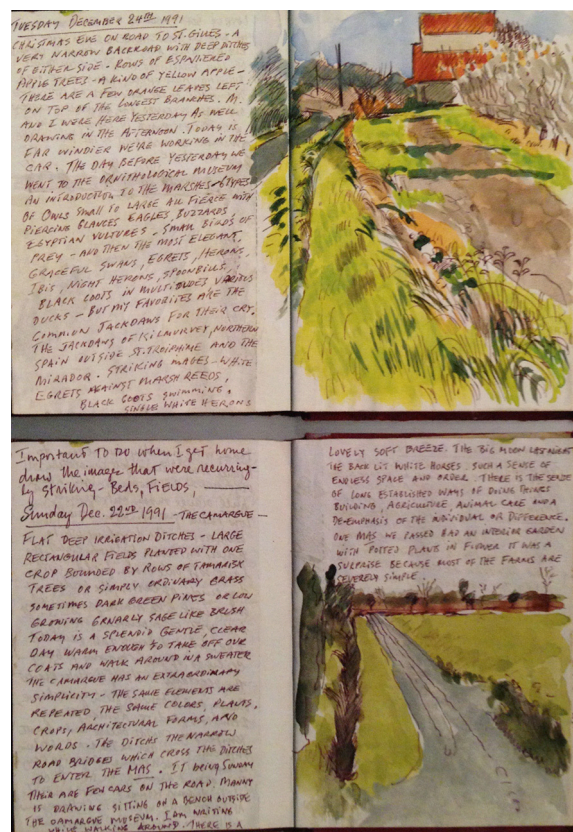 TUESDAY DECEMBER 24TH 1991
CHRISTMAS EVE ON ROAD TO ST. GILLES - A
VERY NARROW BACKROAD WITH DEEP DITCHES
OF EITHER SIDE. ROWS OF ESPALIERED
APPLE TREES - A KIND OF YELLOW APPLE -
THERE ARE A FEW ORANGE LEAVES LEFT
ON TOP OF THE LONGEST BRANCHES. M.
AND I WERE HERE YESTERDAY AS WELL
DRAWING IN THE AFTERNOON. TODAY IS
FAR WINDIER WE'RE WORKING IN THE
CAR. THE DAY BEFORE YESTERDAY WE
WENT TO THE ORNITHOLOGICAL MUSEUM
AN INTRODUCTION TO THE MARSHES - 6 TYPES
OF OWLS SMALL TO LARGE ALL FIERCE WITH
PIERCING GLANCES EAGLES, BUZZARDS,
EGYPTIAN VULTURES, SMALL BIRDS OF
PREY - AND THEN THE MOST ELEGANT,
GRACEFUL SWANS, EGRETS, HERONS,
IBIS, NIGHT HERONS, SPOONBILLS,
BLACK COOTS IN MULTITUDES VARIOUS
DUCKS - BUT MY FAVORITES ARE THE
COMMON JACKDAWS FOR THEIR CRY.
THE JACKDAWS OF KILMURVEY, NORTHERN
SPAIN OUTSIDE ST. TROPHIME AND THE
MIRADOR. STRIKING IMAGES - WHITE
EGRETS AGAINST MARSH REEDS,
BLACK COOTS swimming,
SINGLE WHITE HERONS
Important to Do when I get home
draw the image that were recurring-
ly striking - Beds, Fields,
Sunday Dec. 22nd 1991 - THE CAMARGUE -
FLAT DEEP IRRIGATION DITCHES - LARGE
RECTANGULAR FIELDS PLANTED WITH ONE
CROP BOUNDED BY ROWS OF TAMARISK
TREES OR SIMPLY ORDINARY GRASS
SOMETIMES DARK GREEN PINES OR LOW
GROWING GNARLY SAGE LIKE BRUSH
TODAY IS A SPLENDID GENTLE, CLEAR
DAY WARM ENOUGH TO TAKE OFF OUR
COATS AND WALK AROUND IN A SWEATER
THE CAMARGUE HAS AN EXTRAORDINARY
SIMPLICITY - THE SAME ELEMENTS ARE
REPEATED THE SAME COLORS, PLANTS,
CROPS, ARCHITECTURAL FORMS, AND
WORDS. THE DITCHS THE NARROW
ROAD BRIDGES WHICH CROSS THE DITCHES
TO ENTER THE MAS. IT BEING SUNDAY
THEIR ARE FEW CARS ON THE ROAD, MANNY
IS DRAWING SITTING ON A BENCH OUTSIDE
THE CAMARGUE MUSEUM. I AM WRITING
WHILE WALKING AROUND. THERE IS A
LOVELY SOFT BREEZE. THE BIG MOON LAST NIGHT
THE BACK LIT WHITE HORSES. SUCH A SENSE OF
ENDLESS SPACE AND ORDER. THERE IS THE SENSE
OF LONG ESTABLISHED WAYS OF DOING THINGS
BUILDING, AGRICULTURE, ANIMAL CARE AND A
DE-EMPHASIS OF THE INDIVIDUAL OR DIFFERENCE.
ONE MAS WE PASSED HAD AN INTERIOR GARDEN
WITH POTTED PLANTS IN FLOWER IT WAS A
SURPRISE BECAUSE MOST OF THE FARMS ARE
SEVERELY SIMPLE